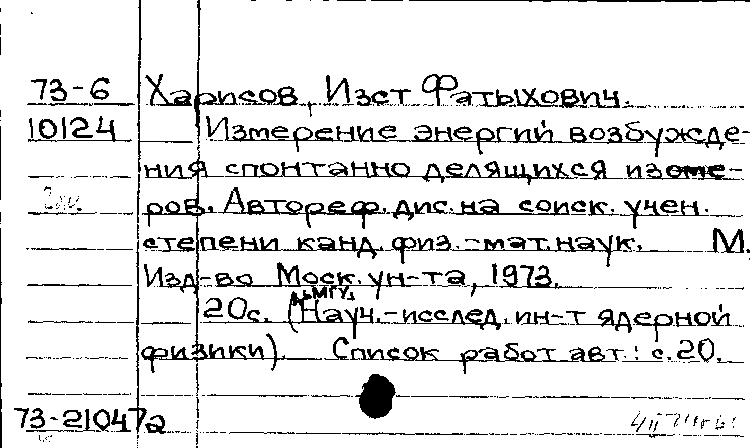 73-6 Харисов, Изэт Фатыхович.
10124 Измерение энергий возбужде-
ния спонтанно делящихся изоме-
ров. Автореф. дис. на соиск. учен.
степени канд. физ.-мат. наук. М.,
Изд-во Моск. ун-та, 1973.
МГУ.
20с. (Науч.-исслед. ин-т ядерной
физики). Список работ авт.: с.20.
73-21047а